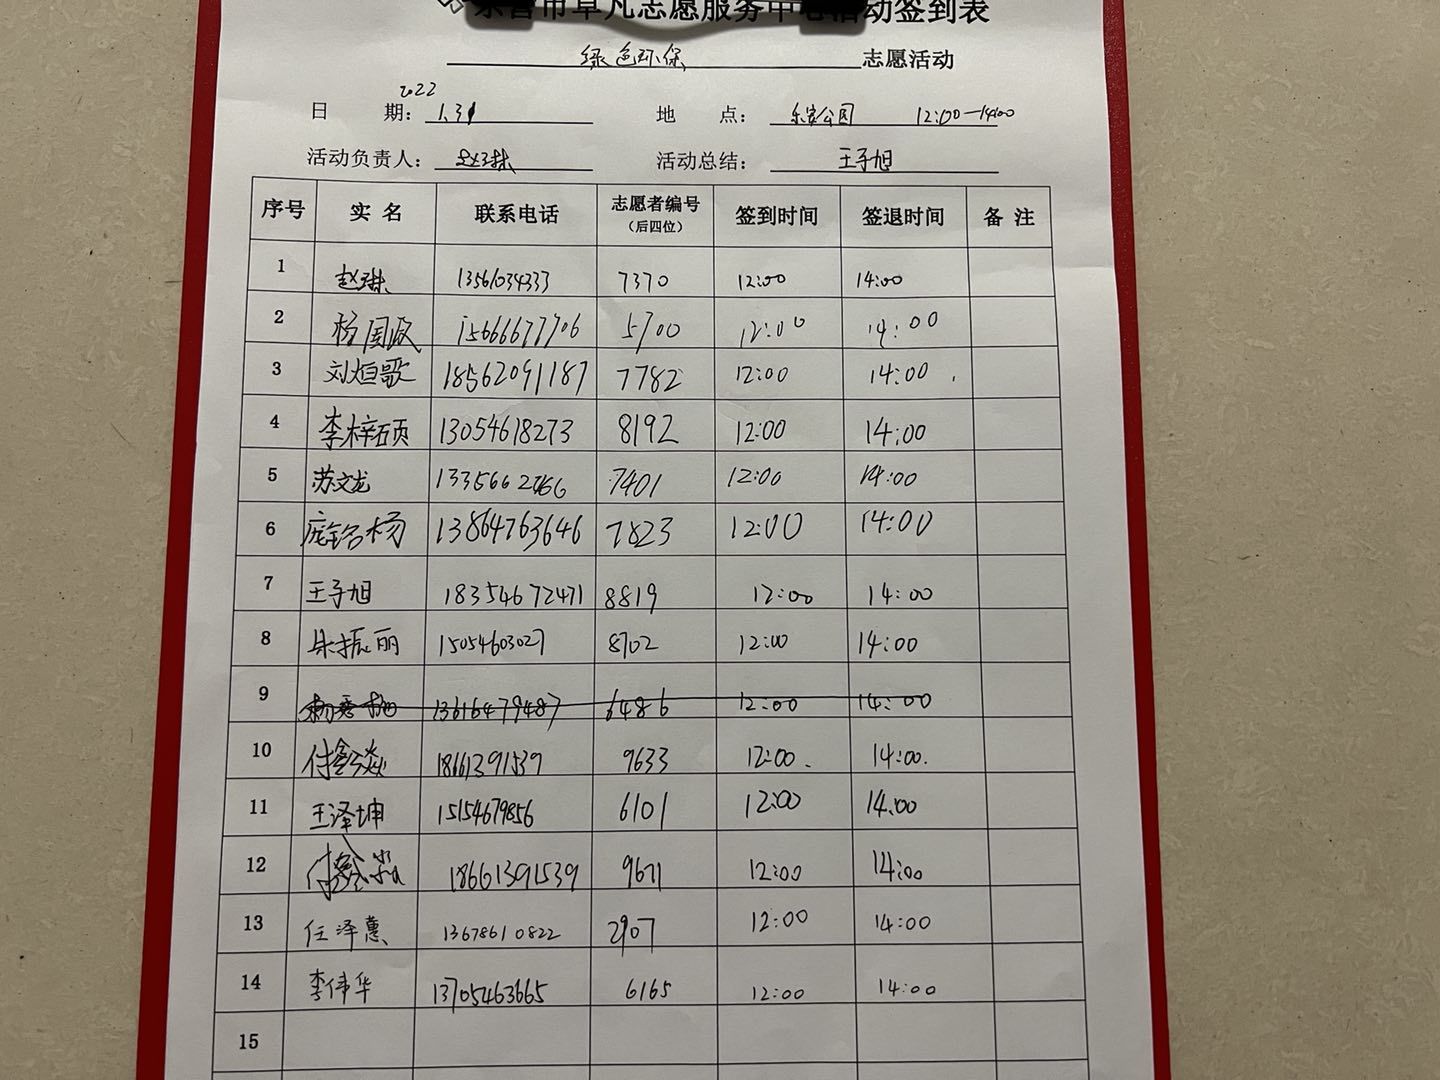 东营市卓凡志愿服务中心活动签到表
绿色环保 志愿活动
2022
日 期: 1.31 地 点: 乐安公园 12:00—14:00
活动负责人: 赵琳 活动总结: 王子旭
序号 实 名 联系电话 志愿者编号 (后四位) 签到时间 签退时间 备 注
1 赵琳 13561034333 7370 12:00 14:00
2 杨国政 15666677706 5700 12:00 14:00
3 刘烜歌 18562091187 7782 12:00 14:00
4 李梓硕 13054618273 8192 12:00 14:00
5 苏文龙 7401 12:00 14:00
6 庞铭杨 13864763646 7823 12:00 14:00
7 王子旭 18354672471 8819 12:00 14:00
8 朱振丽 15054603027 8702 12:00 14:00
9 13616479487 6486 12:00 14:00
10 付鑫焱 18661391539 9633 12:00 14:00
11 王泽坤 15154679856 6101 12:00 14:00
12 付鑫淼 18661391539 9671 12:00 14:00
13 任泽蕙 13678610822 2907 12:00 14:00
14 李伟华 13705463665 6165 12:00 14:00
15